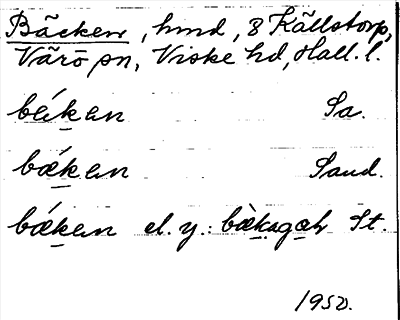 Bäcken, hmd, 8 Källstorp,
Värö sn, Viske hd, Hall. l.
bǽkan Sa.
bǽkan Sand.
bǽkan el. y.: bæ̀kagæh St.
1950.